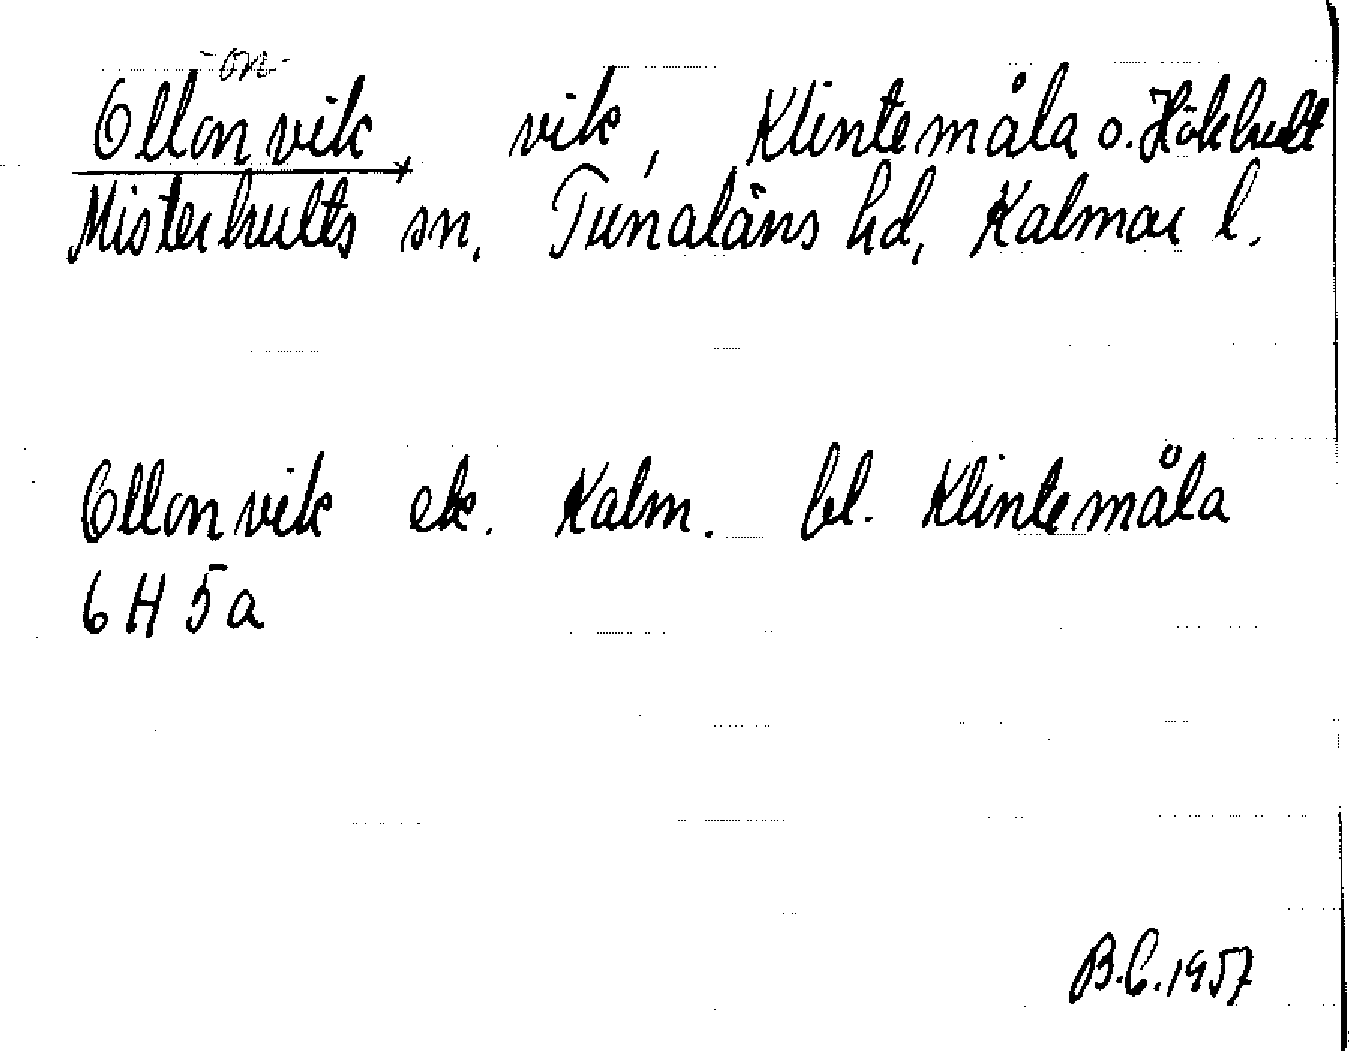 -on-
Ollonvik, vik, Klintemåla o. Hökhult
Misterhults sn, Tunaläns hd, Kalmar l.
Ollonvik ek. Kalm. bl. Klintemåla
6H 5a
B.C. 1957